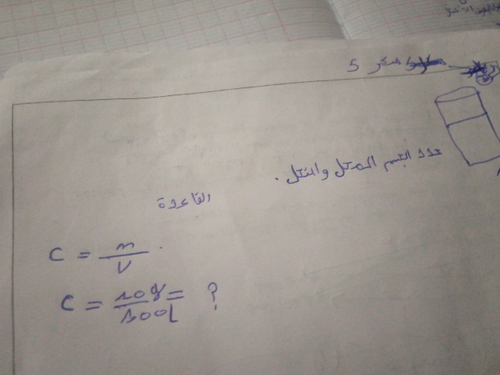 سكر 5
حدد الجسم المحل والمنحل.
القاعدة
C = m / V.
C = 10g / 100l = ?